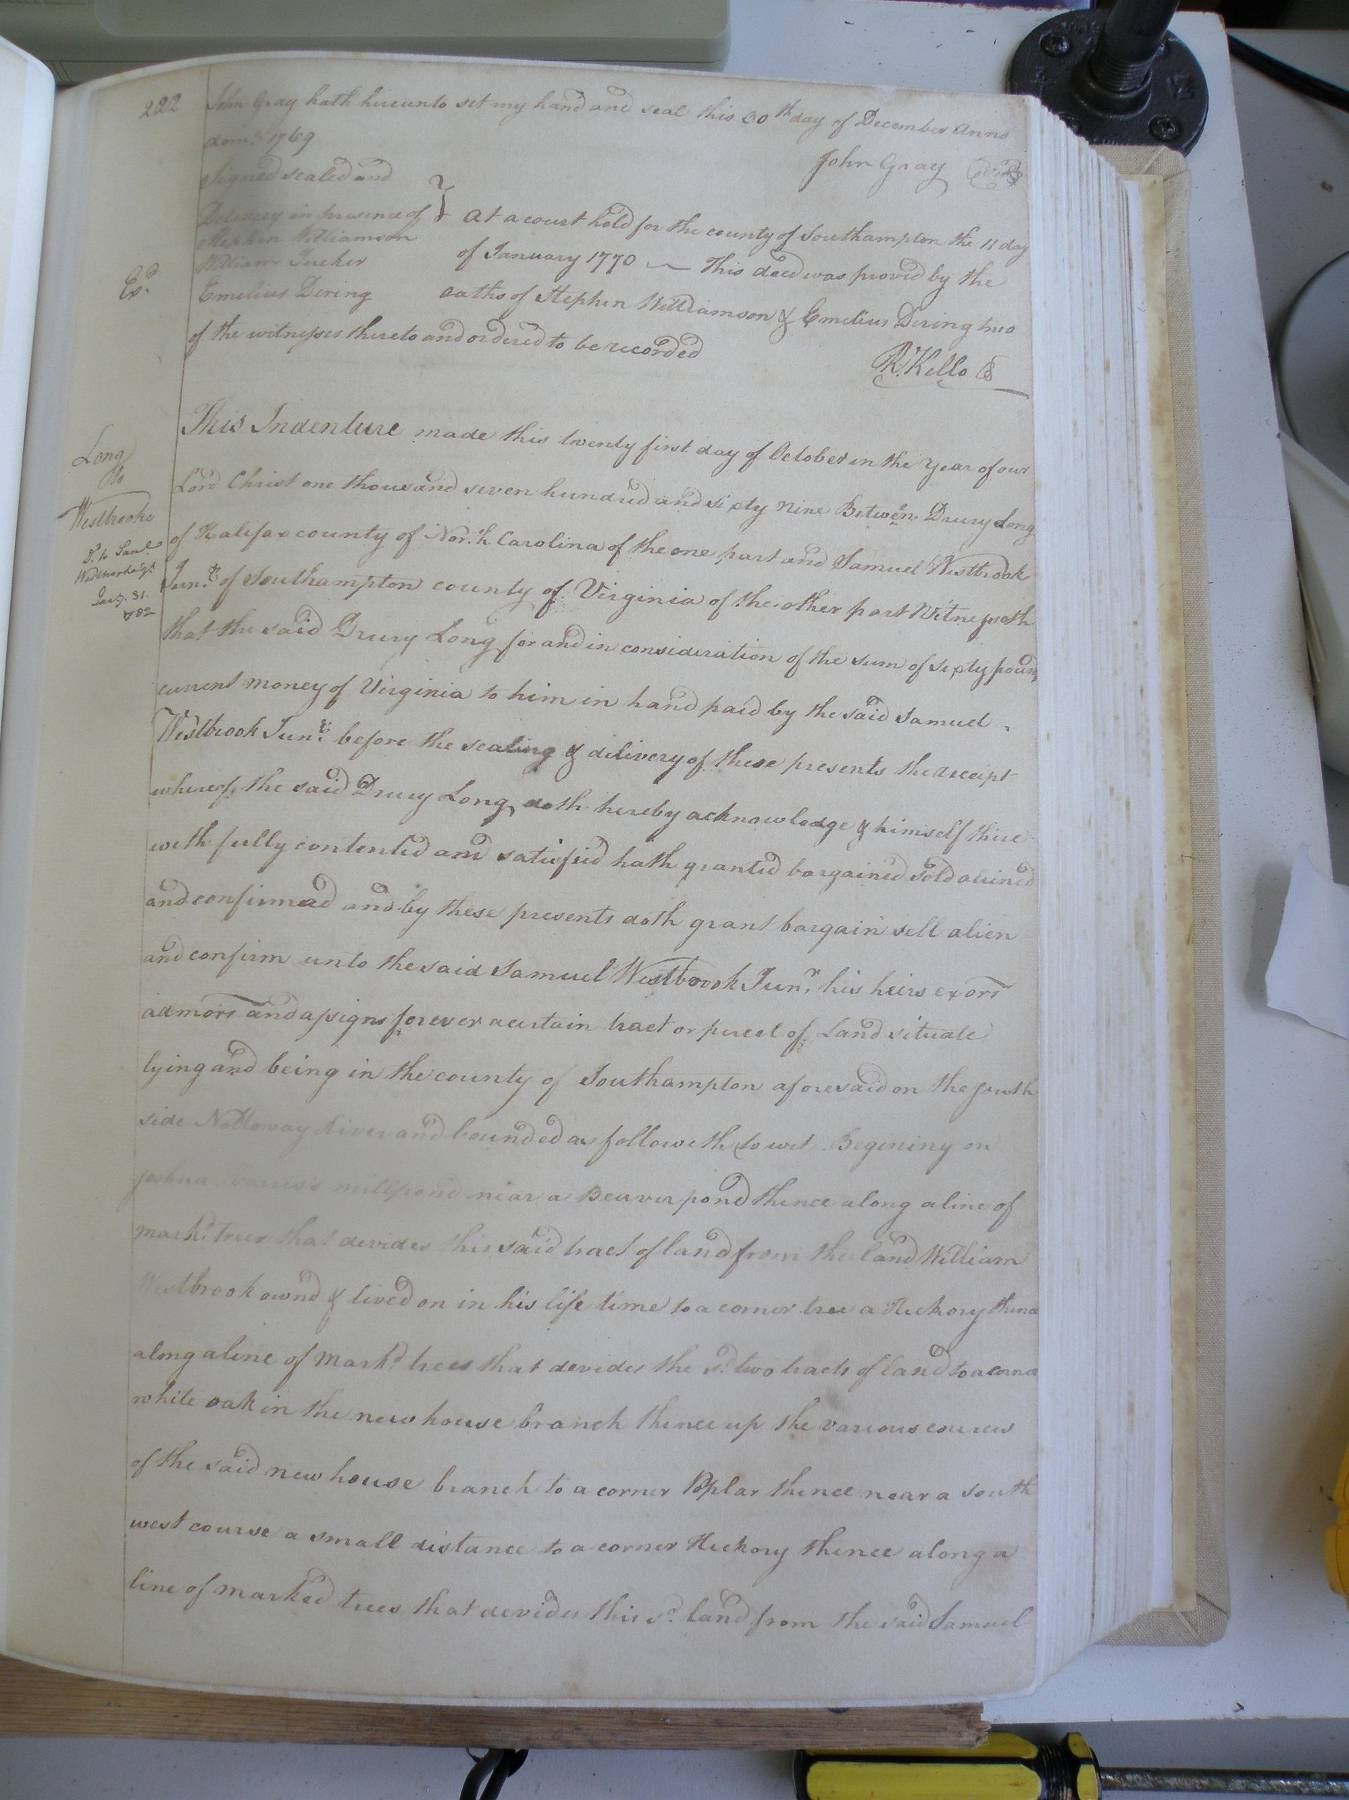 222
John Gray hath hereunto set my hand and seal this 30th day of December Anno
dom: 1769
John Gray
Signed sealed and
Delivery in presence of } At a court held for the county of Southampton the 11 day
Stephen Williamson
of January 1770 — This deed was proved by the
William Tucker
Ex.d
Emelius Dering oaths of Stephen Williamson & Emelius Dering two
of the witnesses thereto and ordered to be recorded
R. Kello
Long
to
Westbrooke
D.d to Saml
Jany. 31.
1782
This Indenture made this twenty first day of October in the Year of our
Lord Christ one thousand seven hundred and sixty nine Between Drury Long
of Halifax county of North Carolina of the one part and Samuel Westbrook
Junr. of Southampton county of Virginia of the other part Witnesseth
that the said Drury Long for and in consideration of the sum of sixty pounds
current money of Virginia to him in hand paid by the said Samuel
Westbrook Junr. before the sealing & delivery of these presents the receipt
whereof the said Drury Long doth hereby acknowledge & himself there
with fully contented and satisfied hath granted bargained sold aliened
and confirmed and by these presents doth grant bargain sell alien
and confirm unto the said Samuel Westbrook Junr. his heirs exors
admors and assigns forever a certain tract or parcel of Land situate
lying and being in the county of Southampton aforesaid on the south
side Nottoway River and bounded as followeth to wit Begining on
Joshua millpond near a Beaver pond thence along a line of
markd. trees that devides this said tract of land from the land William
Westbrook ownd & lived on in his life time to a corner tree a Hickory thence
along a line of Markd. trees that devides the sd. two tracts of land to a corner
white oak in the new house branch thence up the various courses
of the said new house branch to a corner Poplar thence near a south
west course a small distance to a corner Hickory thence along a
line of marked trees that devides this sd. land from the said Samuel